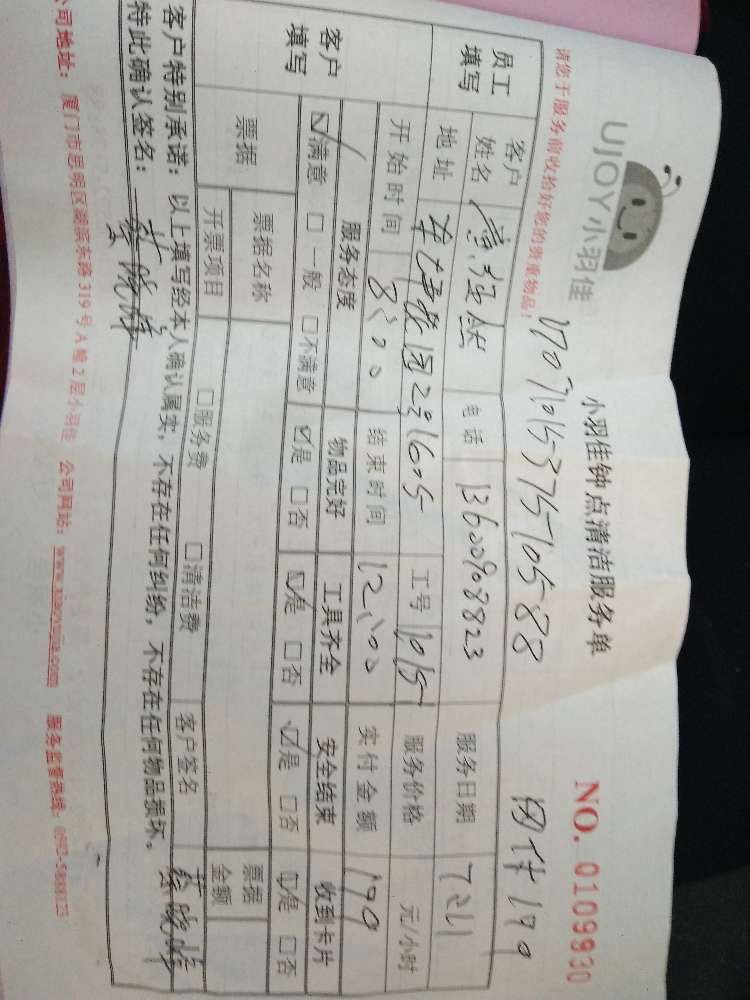 UJOY小羽佳
小羽佳钟点清洁服务单
NO. 0109930
请您于服务前收拾好您的贵重物品!
17071015375710588
团体199
员工填写
客户姓名
电话 13600908823
服务日期 7.21
地址 2号1605
工号 1015
服务价格 元/小时
客户填写
开始时间 8:00
结束时间 12:00
实付金额 199
服务态度 物品完好 工具齐全 安全结束 收到卡片
☑满意 □一般 □不满意 ☑是 □否 ☑是 □否 ☑是 □否 ☑是 □否
票据 票据名称 票据金额
开票项目 □服务费 □清洁费 客户签名 蔡晓婷
客户特别承诺:以上填写经本人确认属实,不存在任何纠纷,不存在任何物品损坏。
特此确认签名:蔡晓婷
公司地址:厦门市思明区湖滨东路319号A幢2层小羽佳 公司网站:www.xiaoyujia.com 服务监督热线:0592-5888123